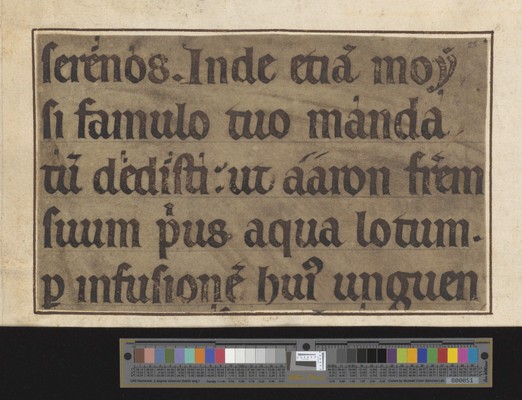 serenos. Inde etiā moẏ
si famulo tuo mandá
tū dedisti: ut ááron fr̄em
suum p̄us aqua lotum.
ꝑ infusionē hui⁹ unguen